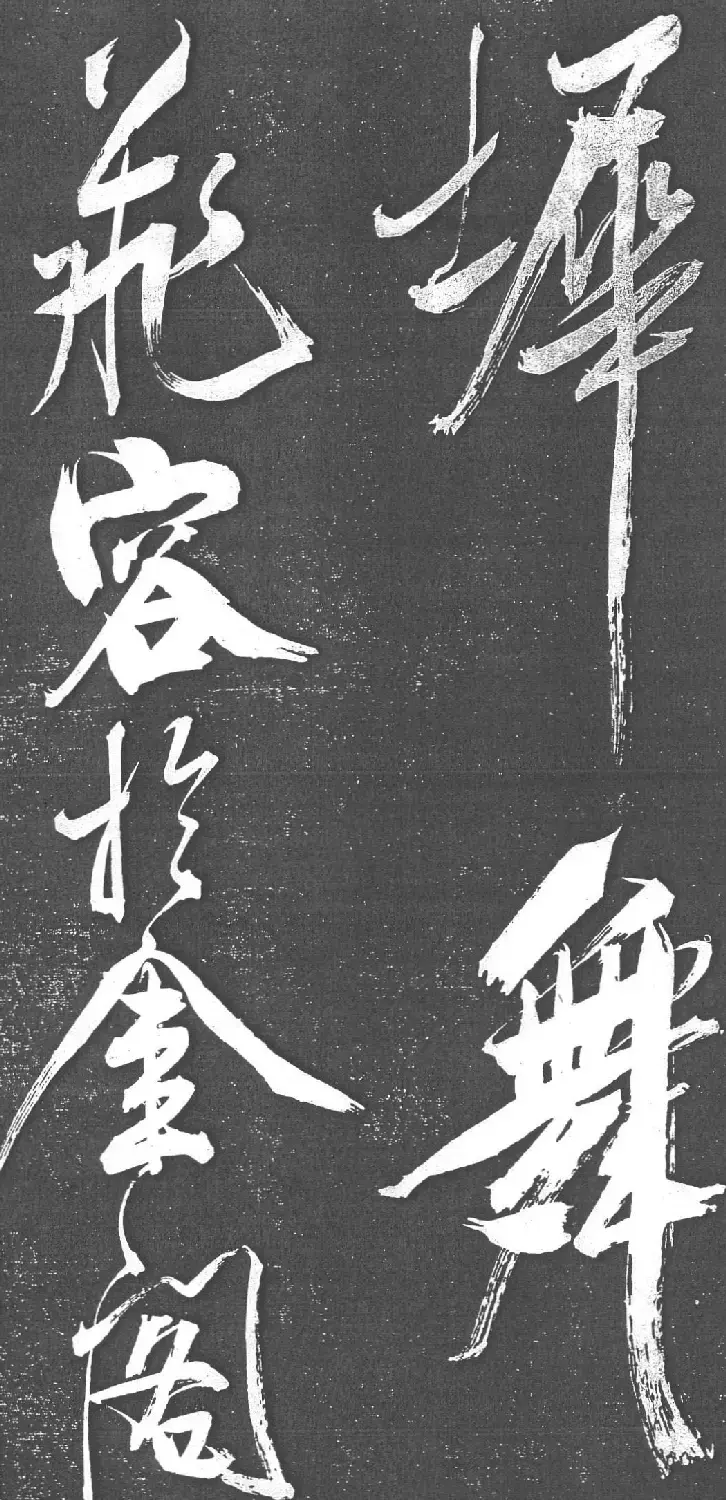 墀舞
飛容於金閣